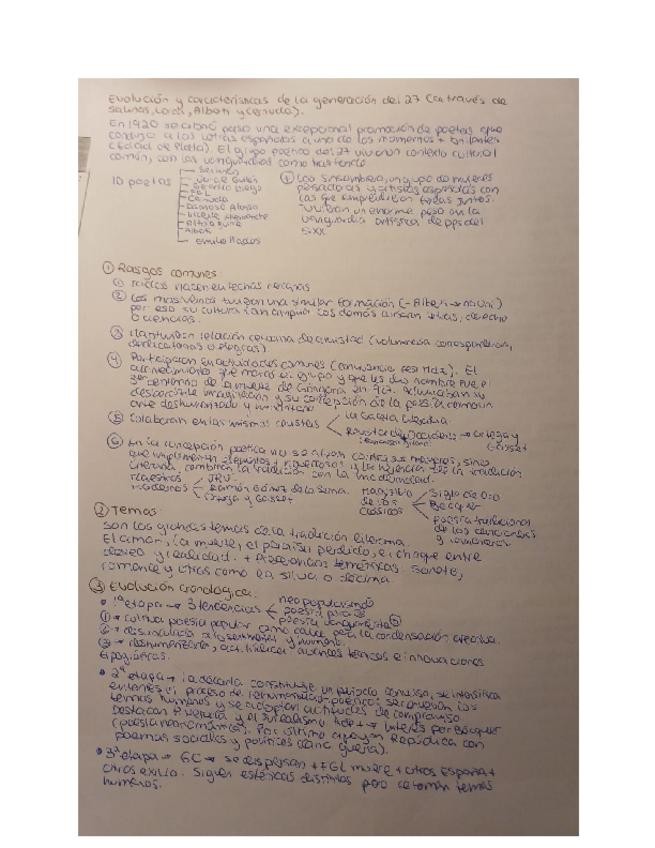 Evolución y características de la generación del 27 (a través de
Salinas, Lorca, Alberti y Cernuda).
En 1920 se abrió paso una excepcional promoción de poetas que
condujo a las letras españolas a uno de los momentos + brillantes
(Edad de Plata). El grupo poético del 27 vivió un contexto cultural
común, con las vanguardias como trasfondo
10 poetas
Salinas
Jorge Guillén
Gerardo Diego
FGL
Cernuda
Dámaso Alonso
Vicente Aleixandre
Altolaguirre
Alberti
Emilio Prados
Las Sinsombrero, un grupo de mujeres
pensadoras y artistas españolas con
las que
tuvieron un enorme peso en la
vanguardia artística de pps del
S.XX
① Rasgos comunes
① nacen en fechas cercanas
② Los mas tuvieron una similar formación (- Alberti → no Uni)
por eso su cultura tan amplia. Los demás cursaron letras, derecho
o ciencias.
③ Mantuvieron relación cercana de amistad (voluminosa correspondencia,
dedicatorias o elogios).
④ Participaron en actividades comunes (convivencia Resi Mdz). El
acontecimiento que marcó el grupo y que les dio nombre fue el
3er centenario de la muerte de Góngora en 927. Admiraban su
desbordante imaginación y su concepción de la poesía como un
arte deshumanizado y minoritario
⑤ Colaboran en las mismas revistas
La Gaceta Literaria.
Revista de Occidente → Ortega y
Gasset
⑥ En la concepción poética no se alzan contra sus maestros, sino
que implementan elementos novedosos y la herencia de la tradución
literaria, combinan la tradición con la modernidad.
Maestros
modernos
JRJ
Ramón Gómez de la Serna.
Ortega y Gasset
Magisterio
de los
clásicos
Siglo de Oro
Bécquer
poesía tradicional
de los cancioneros
y romanceros
② Temas:
Son los grandes temas de la tradición literaria.
El amor, la muerte, el paraíso perdido, el choque entre
deseo y realidad. + Preferencias temétricas. Soneto,
romance y otras como la silva o décima.
③ Evolución cronológica:
• 1ª etapa → 3 tendencias
neopopularismo
poesía pura
poesía vanguardista
① → cultiva poesía popular como cauce para la condensación creativa.
② → desvincula a lo sentimental y humano.
③ → deshumanización, avances técnicos e innovaciones
tipográficas.
• 2ª etapa → la década constituye un periodo convulso, se intensifica
entonces el proceso de rehumanización poética: se renuevan los
temas humanos y se adoptan actitudes de compromiso
Destacan P. Neruda y el surrealismo → interés por Bécquer
(poesía neorromántica). Por último apoyan República con
poemas sociales y políticos (dina guerra).
• 3ª etapa → GC → se dispersan + FGL muere + otros España +
otros exilio. Siguen estéticas distintas pero retoman temas
humanos.